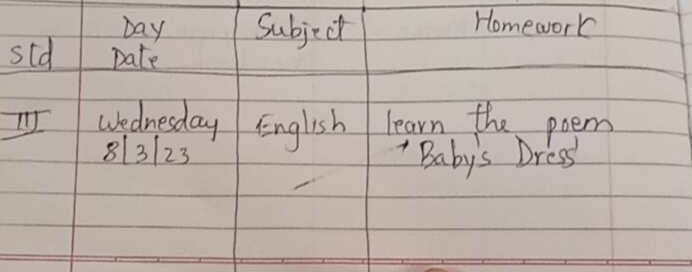 Day Subject Homework
Std Date
III Wednesday English learn the poem
8/3/23 "Baby's Dress"